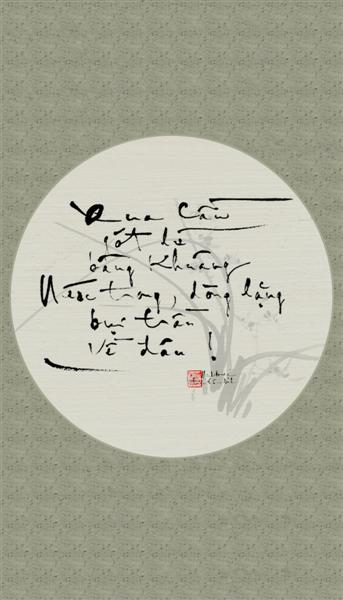 Qua cầu
gót hè
bâng khuâng
Nước trong, dòng lặng
bụi trần
về đâu !